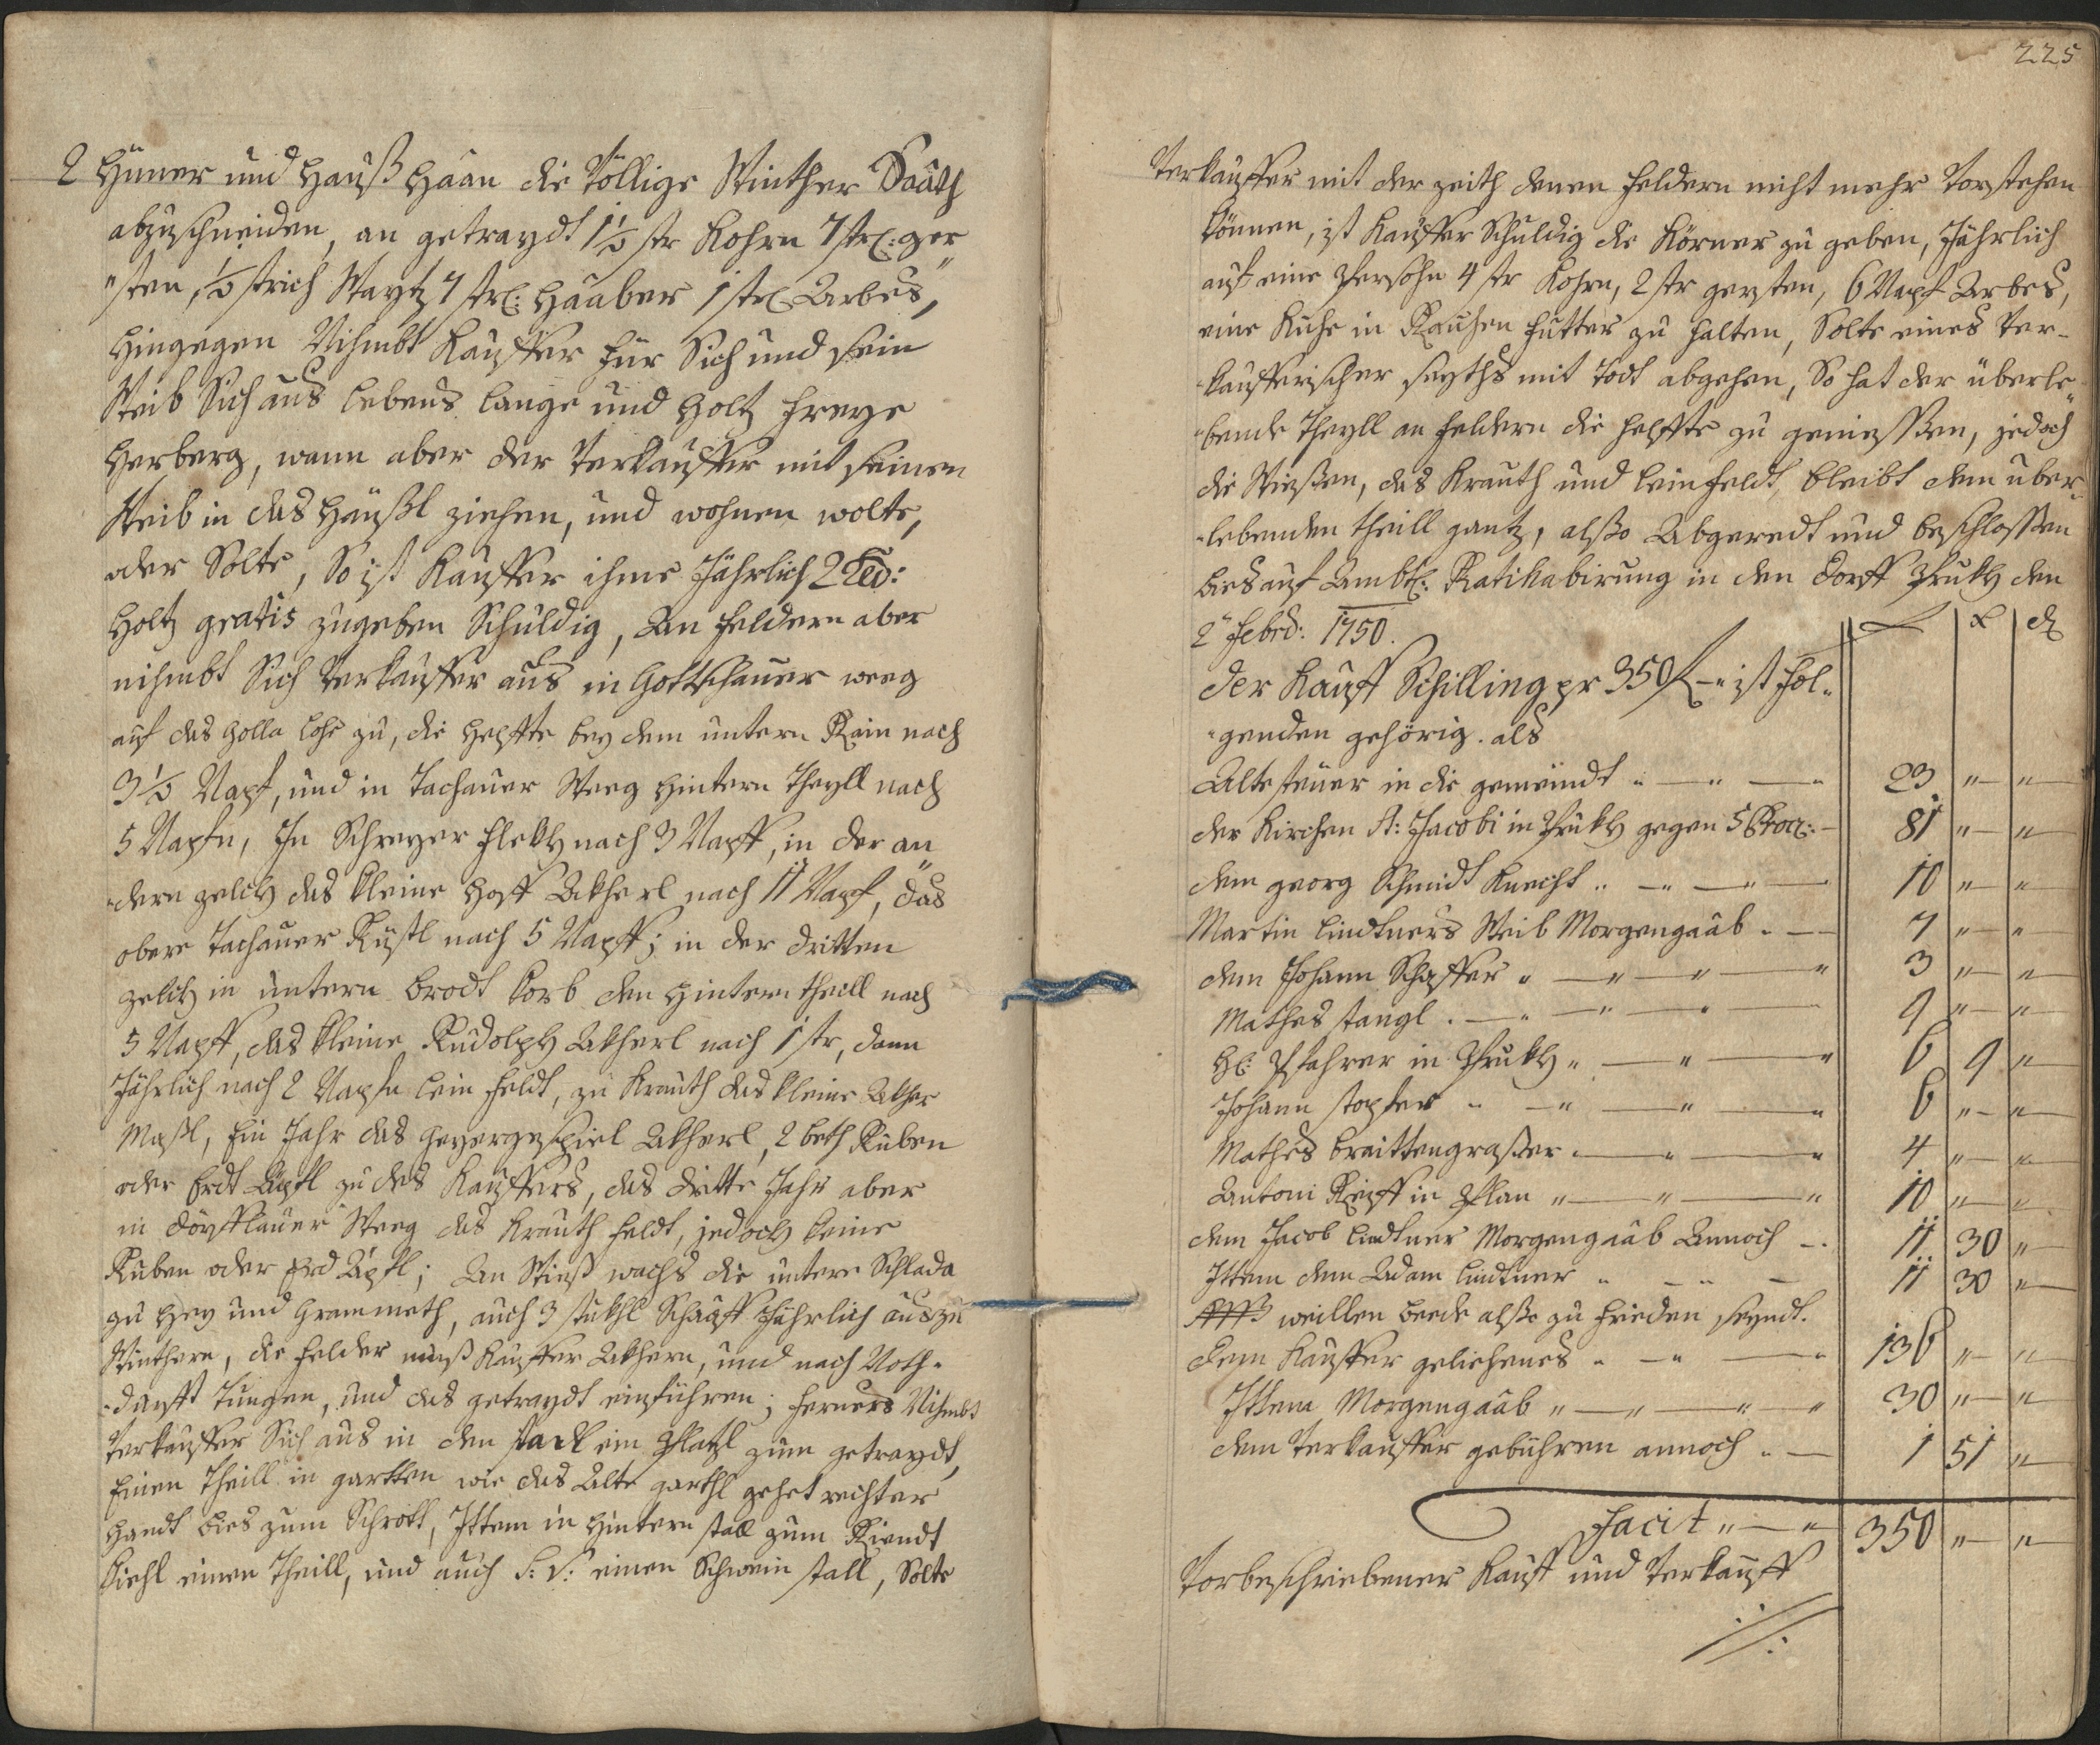 2 Hüner und Haußhaan die Völlige Winther Saath
abzuschneiden, an getraydt 1½ str Kohrn 7 str: ger
"sten, ½ strich Waytz 7 str: Haaber 1 str Arbes,
Hingegen Nihmbt Kauffer für Sich und sein
Weib Sich aus lebens lange und Holtz freye
Herberg, wann aber der Verkauffer mit seinen
Weib in das Häußl ziehen, und wohnen wolte,
oder Solte, So ist Kauffer ihme Jährlich 2
Holtz gratis zugeben Schuldig, An feldern aber
nihmbt Sich Verkauffer aus in Gottschauer weeg
auf das Holla lohe zu, die Helffte bey dem untern Rain nach
3½ Napf, und in Tachauer Weeg Hintern Theyll nach
5 Napfn, In Schreyer flekh nach 3 Napff, in der an
-dern zelch das kleine Hoff Akherl nach 11 Napf, das
obere Tachauer Rüßl nach 5 Napff; in der dritten
zelch in untern brodt korb den Hintern theill nach
5 Napff, das kleine Rudolph Akherl nach 1 str, dann
Jährlich nach 2 Napfn lein feldt, zu Krauth das kleine Akher
Maßl, Ein Jahr das Geyergespiel Akherl, 2 beth Ruben
oder Erdt Äpfl zu des Kauffers, das dritte Jahr aber
in dörfflauer Weeg das Krauth feldt, jedoch keine
Ruben oder Erd Äpfl; An Wieß wachs die untere Schlada
zu Hey und Grammeth, auch 3 stükhl Schaaff Jährlich aus zu
Winthern, die felder muß Kauffer Akhern, und nach Noth-
-durfft tungen, und das getraydt einführen; ferners Nihmbt
Verkauffer Sich aus in den stadl ein Platzl zum getraydt,
Einen Theill in gartten wie das Alte garthl gehet rechter
Handt bies zum Schrott, Ittem in Hintern stall zum Riendt
Viehl einen Theill, und auch S: V: einen Schwein stall, Solte
225
Verkauffer mit der zeith denen feldern nicht mehr Vorstehen
können, ist Kauffer Schuldig die Körner zu geben, Jährlich
auf eine Persohn 4 str Kohrn, 2 str gersten, 6 Napf Arbes,
eine Kuhe in Rauhen futter zu halten, Solte eines Ver-
-kaufferischer seyths mit Todt abgehen, So hat der überle
-bende Theyll an feldern die helffte zu geniessen, jedoch
die Wiesen, das Krauth und leinfeldt, bleibt dem uber-
-lebenden theill gantz, alßo Abgeredt und beschlossen
bies auf Ambtl: Ratihabirung in den Dorff Pruckh den
2 Febrd: 1750. f x d
Der Kauff Schilling pr 350 f - " ist fol-
-genden gehörig. als
Alte steüer in die gemeindt " — " — " 23 " — "
der Kirchen St: Jacobi in Pruckh gegen 5 Proc: — 81 " — "
dem georg Schmidt Knecht " — " — " — 10 " — "
Martin Lindtners Weib Morgengaab " — 7 " — "
dem Johann Schaffer " — " — " — " 3 " — "
Mathes stangl " — " — " — " 9 " — "
H: Pfahrer in Pruckh " — " — " 6 9 "
Johann stopfer " — " — " — " 6 " — "
Mathes braittengraßer " — " — " 4 " — "
Antoni Ripff in Plan " — " — " 10 " — "
dem Jacob Lindtner Morgengaab Annoch — " 11 30 "
Ittem dem Adam Lindtner " — " — 11 30 "
weillen beede alßo zu frieden seyndt.
dem Kauffer geliehenes " — " — " 136 " — "
Ittem Morgengaab " — " — " — " 30 " — "
dem Verkauffer gebühren annoch " — 1 51 "
Facit " — " 350 " — "
Vorbeschriebener Kauff und Verkauff